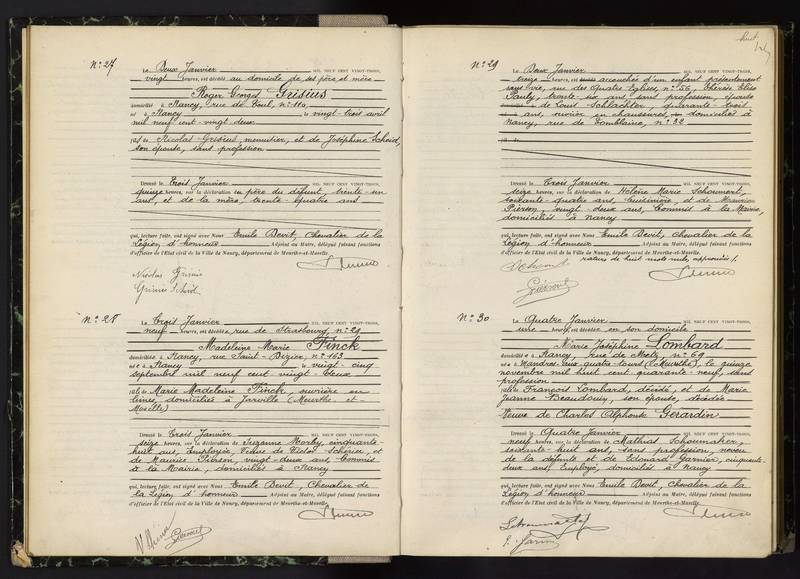 N° 27
Le Deux Janvier MIL NEUF CENT VINGT-TROIS,
vingt heures, est décédé au domicile de ses père et mère
Roger Georges Grisius
domicilié à Nancy, rue de Toul, n° 110,
né à Nancy le vingt-trois avril
mil neuf cent vingt deux
fils de Nicolas Grisius, menuisier, et de Joséphine Scheid,
son épouse, sans profession
Dressé le Trois Janvier MIL NEUF CENT VINGT-TROIS,
quinze heures, sur la déclaration du père du défunt, trente-un
ans, et de la mère, trente-quatre ans
qui, lecture faite, ont signé avec Nous Emile Devit, Chevalier de la
Légion d'honneur Adjoint au Maire, délégué faisant fonctions
d'officier de l'Etat civil de la Ville de Nancy, département de Meurthe-et-Moselle.
N° 28
Le Trois Janvier MIL NEUF CENT VINGT-TROIS,
neuf heures, est décédée rue de Strasbourg, n° 29
Madeleine Marie Finck
domiciliée à Nancy, rue Saint-Dizier, n° 163
née à Nancy le vingt-cinq
septembre mil neuf cent vingt deux
fille de Marie Madeleine Finck, ouvrière en
limes, domiciliée à Jarville (Meurthe-et-
Moselle)
Dressé le Trois Janvier MIL NEUF CENT VINGT-TROIS,
seize heures, sur la déclaration de Suzanne Morby, cinquante-
huit ans, Employée, Veuve de Victor Scherier, et
de Maurice Pierson, vingt-deux ans, Commis
à la Mairie, domiciliés à Nancy
qui, lecture faite, ont signé avec Nous Emile Devit, Chevalier de
la Légion d'honneur Adjoint au Maire, délégué faisant fonctions
d'officier de l'Etat civil de la Ville de Nancy, département de Meurthe-et-Moselle.
huit
N° 29
Le Deux Janvier MIL NEUF CENT VINGT-TROIS,
treize heures, est accouchée d'un enfant présentement
sans vie, rue des Quatre Eglises, n° 56, Thérèse Elise
Pauly, trente-six ans, sans profession, épouse
de Louis Schlachter, quarante-trois
ans, ouvrier en chaussures, domiciliés à
Nancy, rue de Tomblaine, n° 32
Dressé le Trois Janvier MIL NEUF CENT VINGT-TROIS,
seize heures, sur la déclaration de Hélène Marie Schoumert,
soixante-quatre ans, Cuisinière, et de Maurice
Pierson, vingt-deux ans, Commis à la Mairie,
domiciliés à Nancy
qui, lecture faite, ont signé avec Nous Emile Devit, Chevalier de la
Légion d'honneur Adjoint au Maire, délégué faisant fonctions
d'officier de l'Etat civil de la Ville de Nancy, département de Meurthe-et-Moselle.
rature de huit mots nuls, approuvée
N° 30
Le Quatre Janvier MIL NEUF CENT VINGT-TROIS,
une heures, est décédée en son domicile
Marie Joséphine Lombard
domiciliée à Nancy, rue de Metz, n° 69
née à Mandres-aux-quatre-tours (Meurthe), le quinze
novembre mil huit cent quarante-neuf, sans
profession
fille de François Lombard, décédé, et de Marie
Jeanne Beaudouin, son épouse, décédée
Veuve de Charles Alphonse Gérardin
Dressé le Quatre Janvier MIL NEUF CENT VINGT-TROIS,
neuf heures, sur la déclaration de Mathias Schoumaker,
soixante-huit ans, sans profession, neveu
de la défunte et de Edouard Garnier, cinquante-
deux ans, Employé, domiciliés à Nancy
qui, lecture faite, ont signé avec Nous Emile Devit, Chevalier de la
Légion d'honneur Adjoint au Maire, délégué faisant fonctions
d'officier de l'Etat civil de la Ville de Nancy, département de Meurthe-et-Moselle.